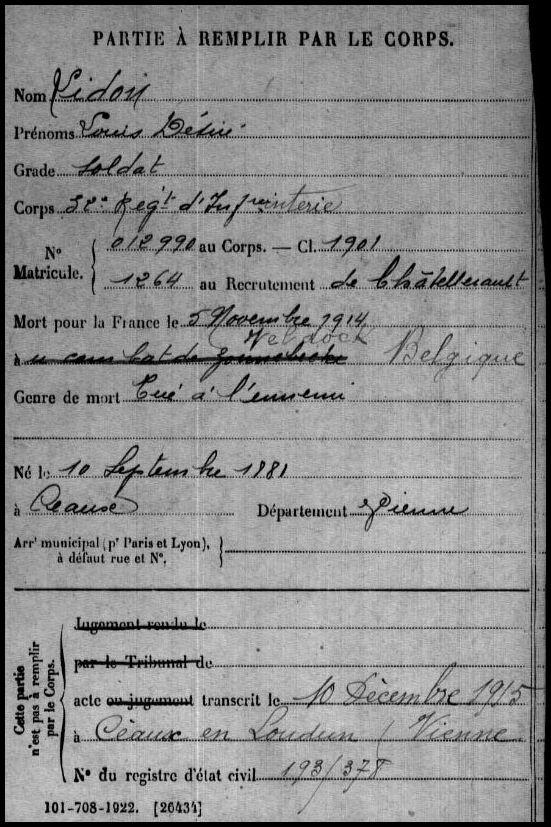 PARTIE À REMPLIR PAR LE CORPS.
Nom Pidon
Prénoms Louis Désiré
Grade soldat
Corps 32e Régt d'Infanterie
N° Matricule. { 012990 au Corps. — Cl. 1901
1264 au Recrutement de Châtellerault
Mort pour la France le 5 Novembre 1914
à un combat de Zonnebecke Belgique
Genre de mort Tué à l'ennemi
Né le 10 Septembre 1881
à Ceaux Département Vienne
Arrt municipal (pr Paris et Lyon),
à défaut rue et N°.
Cette partie n'est pas à remplir par le Corps.
Jugement rendu le
par le Tribunal de
acte ou jugement transcrit le 10 Décembre 1915
à Céaux en Loudun (Vienne
N° du registre d'état civil 193/378
101-708-1922. [26434]